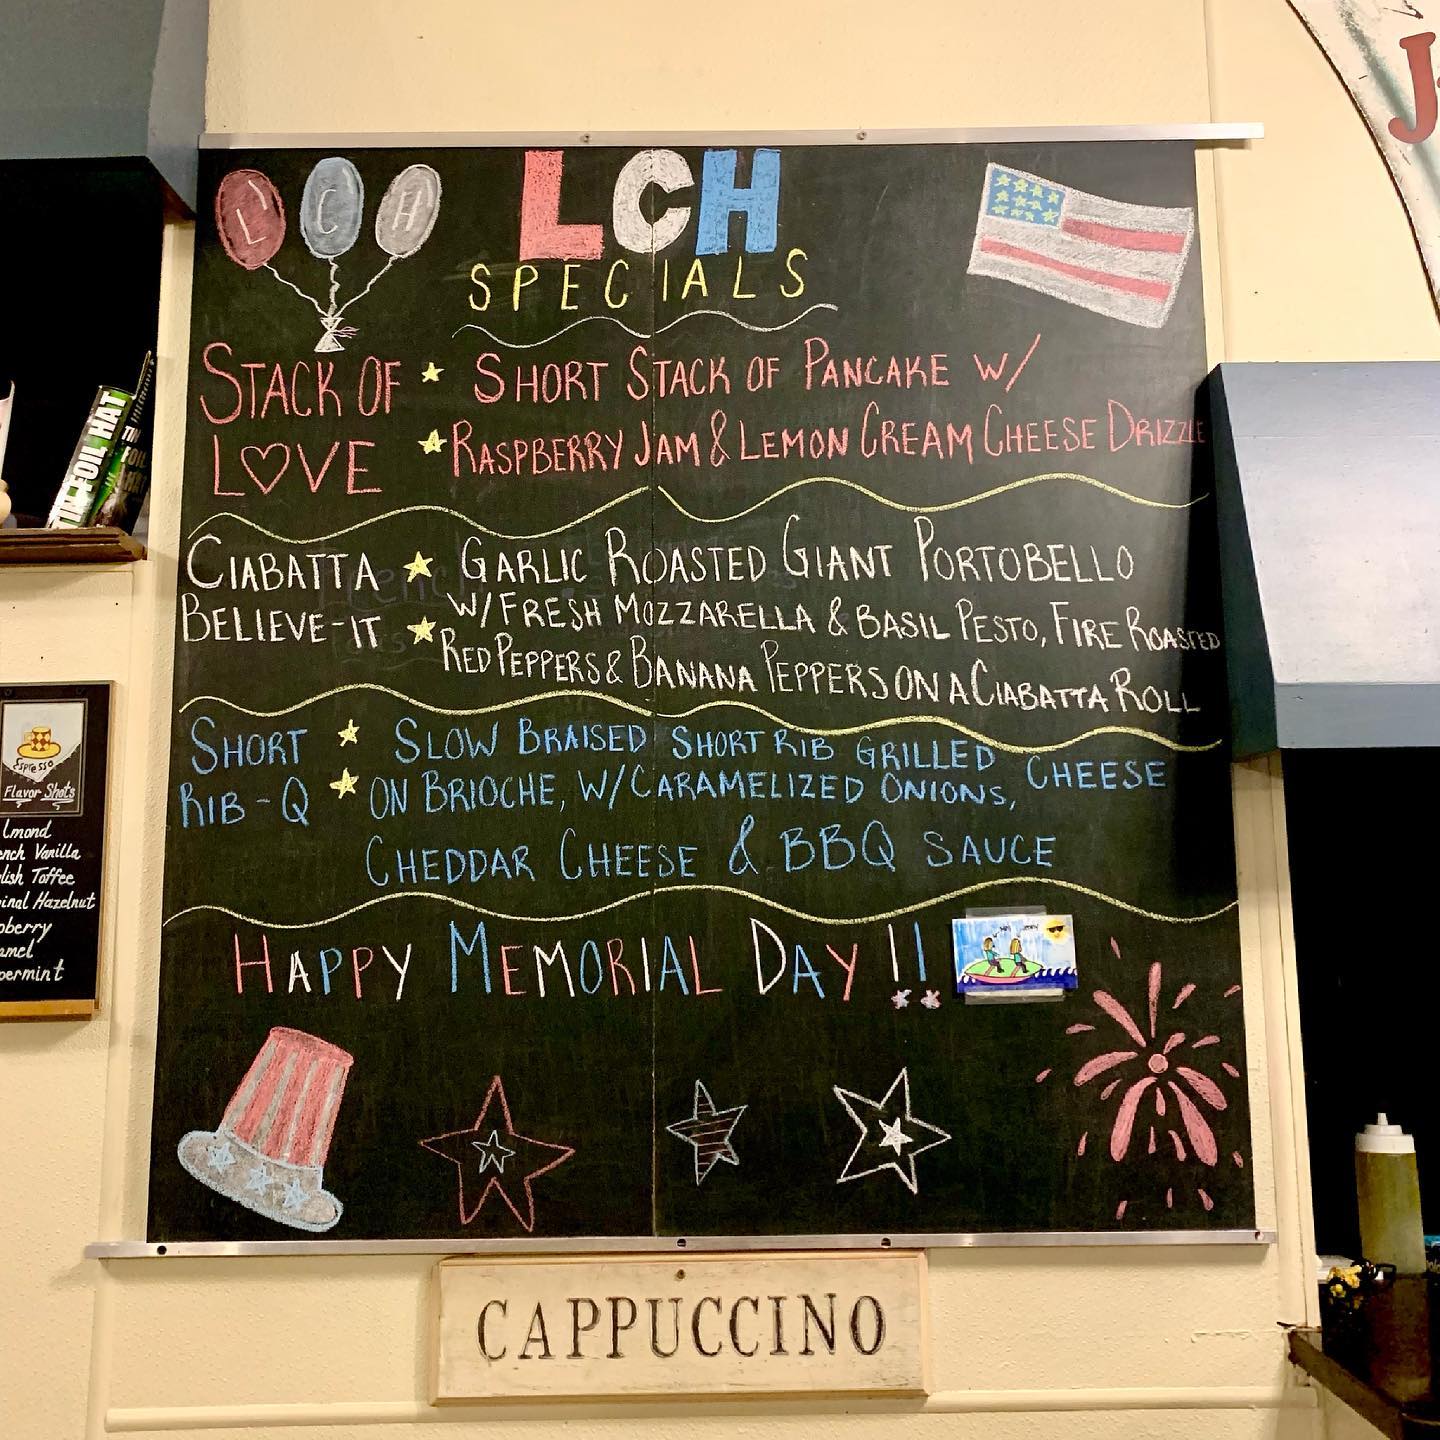 L C H
LCH
SPECIALS
STACK OF
LOVE
SHORT STACK OF PANCAKE W/
RASPBERRY JAM & LEMON CREAM CHEESE DRIZZLE
CIABATTA
BELIEVE-IT
GARLIC ROASTED GIANT PORTOBELLO
W/FRESH MOZZARELLA & BASIL PESTO, FIRE ROASTED
RED PEPPERS & BANANA PEPPERS ON A CIABATTA ROLL
SHORT
RIB-Q
SLOW BRAISED SHORT RIB GRILLED CHEESE
ON BRIOCHE, W/CARAMELIZED ONIONS,
CHEDDAR CHEESE & BBQ SAUCE
HAPPY MEMORIAL DAY!!
CAPPUCCINO
TINFOIL HAT
Espresso
Flavor Shots
lmond
ench Vanilla
lish Toffee
inal Hazelnut
pberry
amel
permint
J